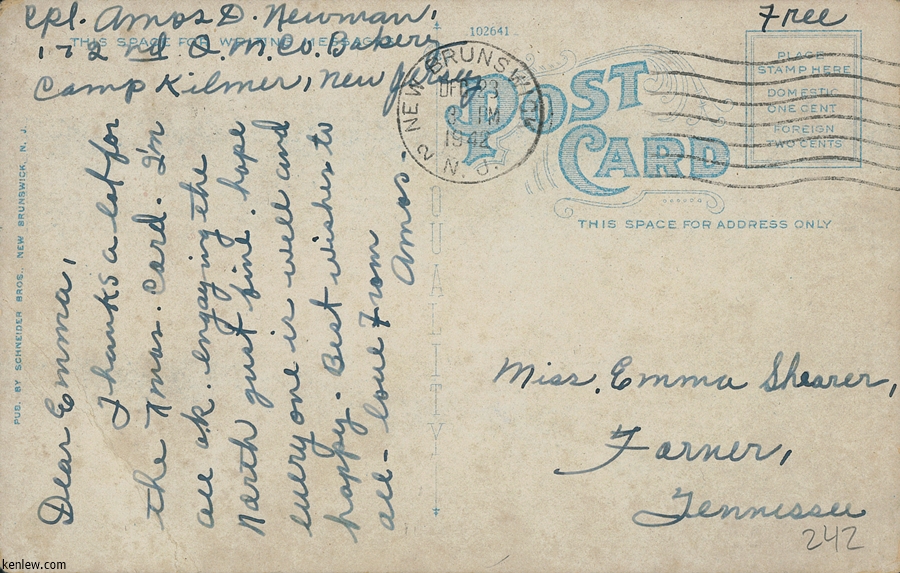 Cpl. Amos D. Newman,
172 nd Q.M.Co. Bakery
Camp Kilmer, New Jersey
THIS SPACE FOR WRITING MESSAGES
Dear Emma,
Thanks a lot for
the Xmas. Card. I'm
all ok. engaying the
North just fine. hope
every one is well and
happy. Best wishes to
all - love From
Amos.
PUB. BY SCHNEIDER BROS. NEW BRUNSWICK, N. J.
QUALITY
102641
NEW BRUNSWICK
DEC 23
3 PM
1942
2 N. J.
POST
CARD
THIS SPACE FOR ADDRESS ONLY
Free
PLACE
STAMP HERE
DOMESTIC
ONE CENT
FOREIGN
TWO CENTS
Miss. Emma Shearer,
Farner,
Tennessee
242
kenlew.com